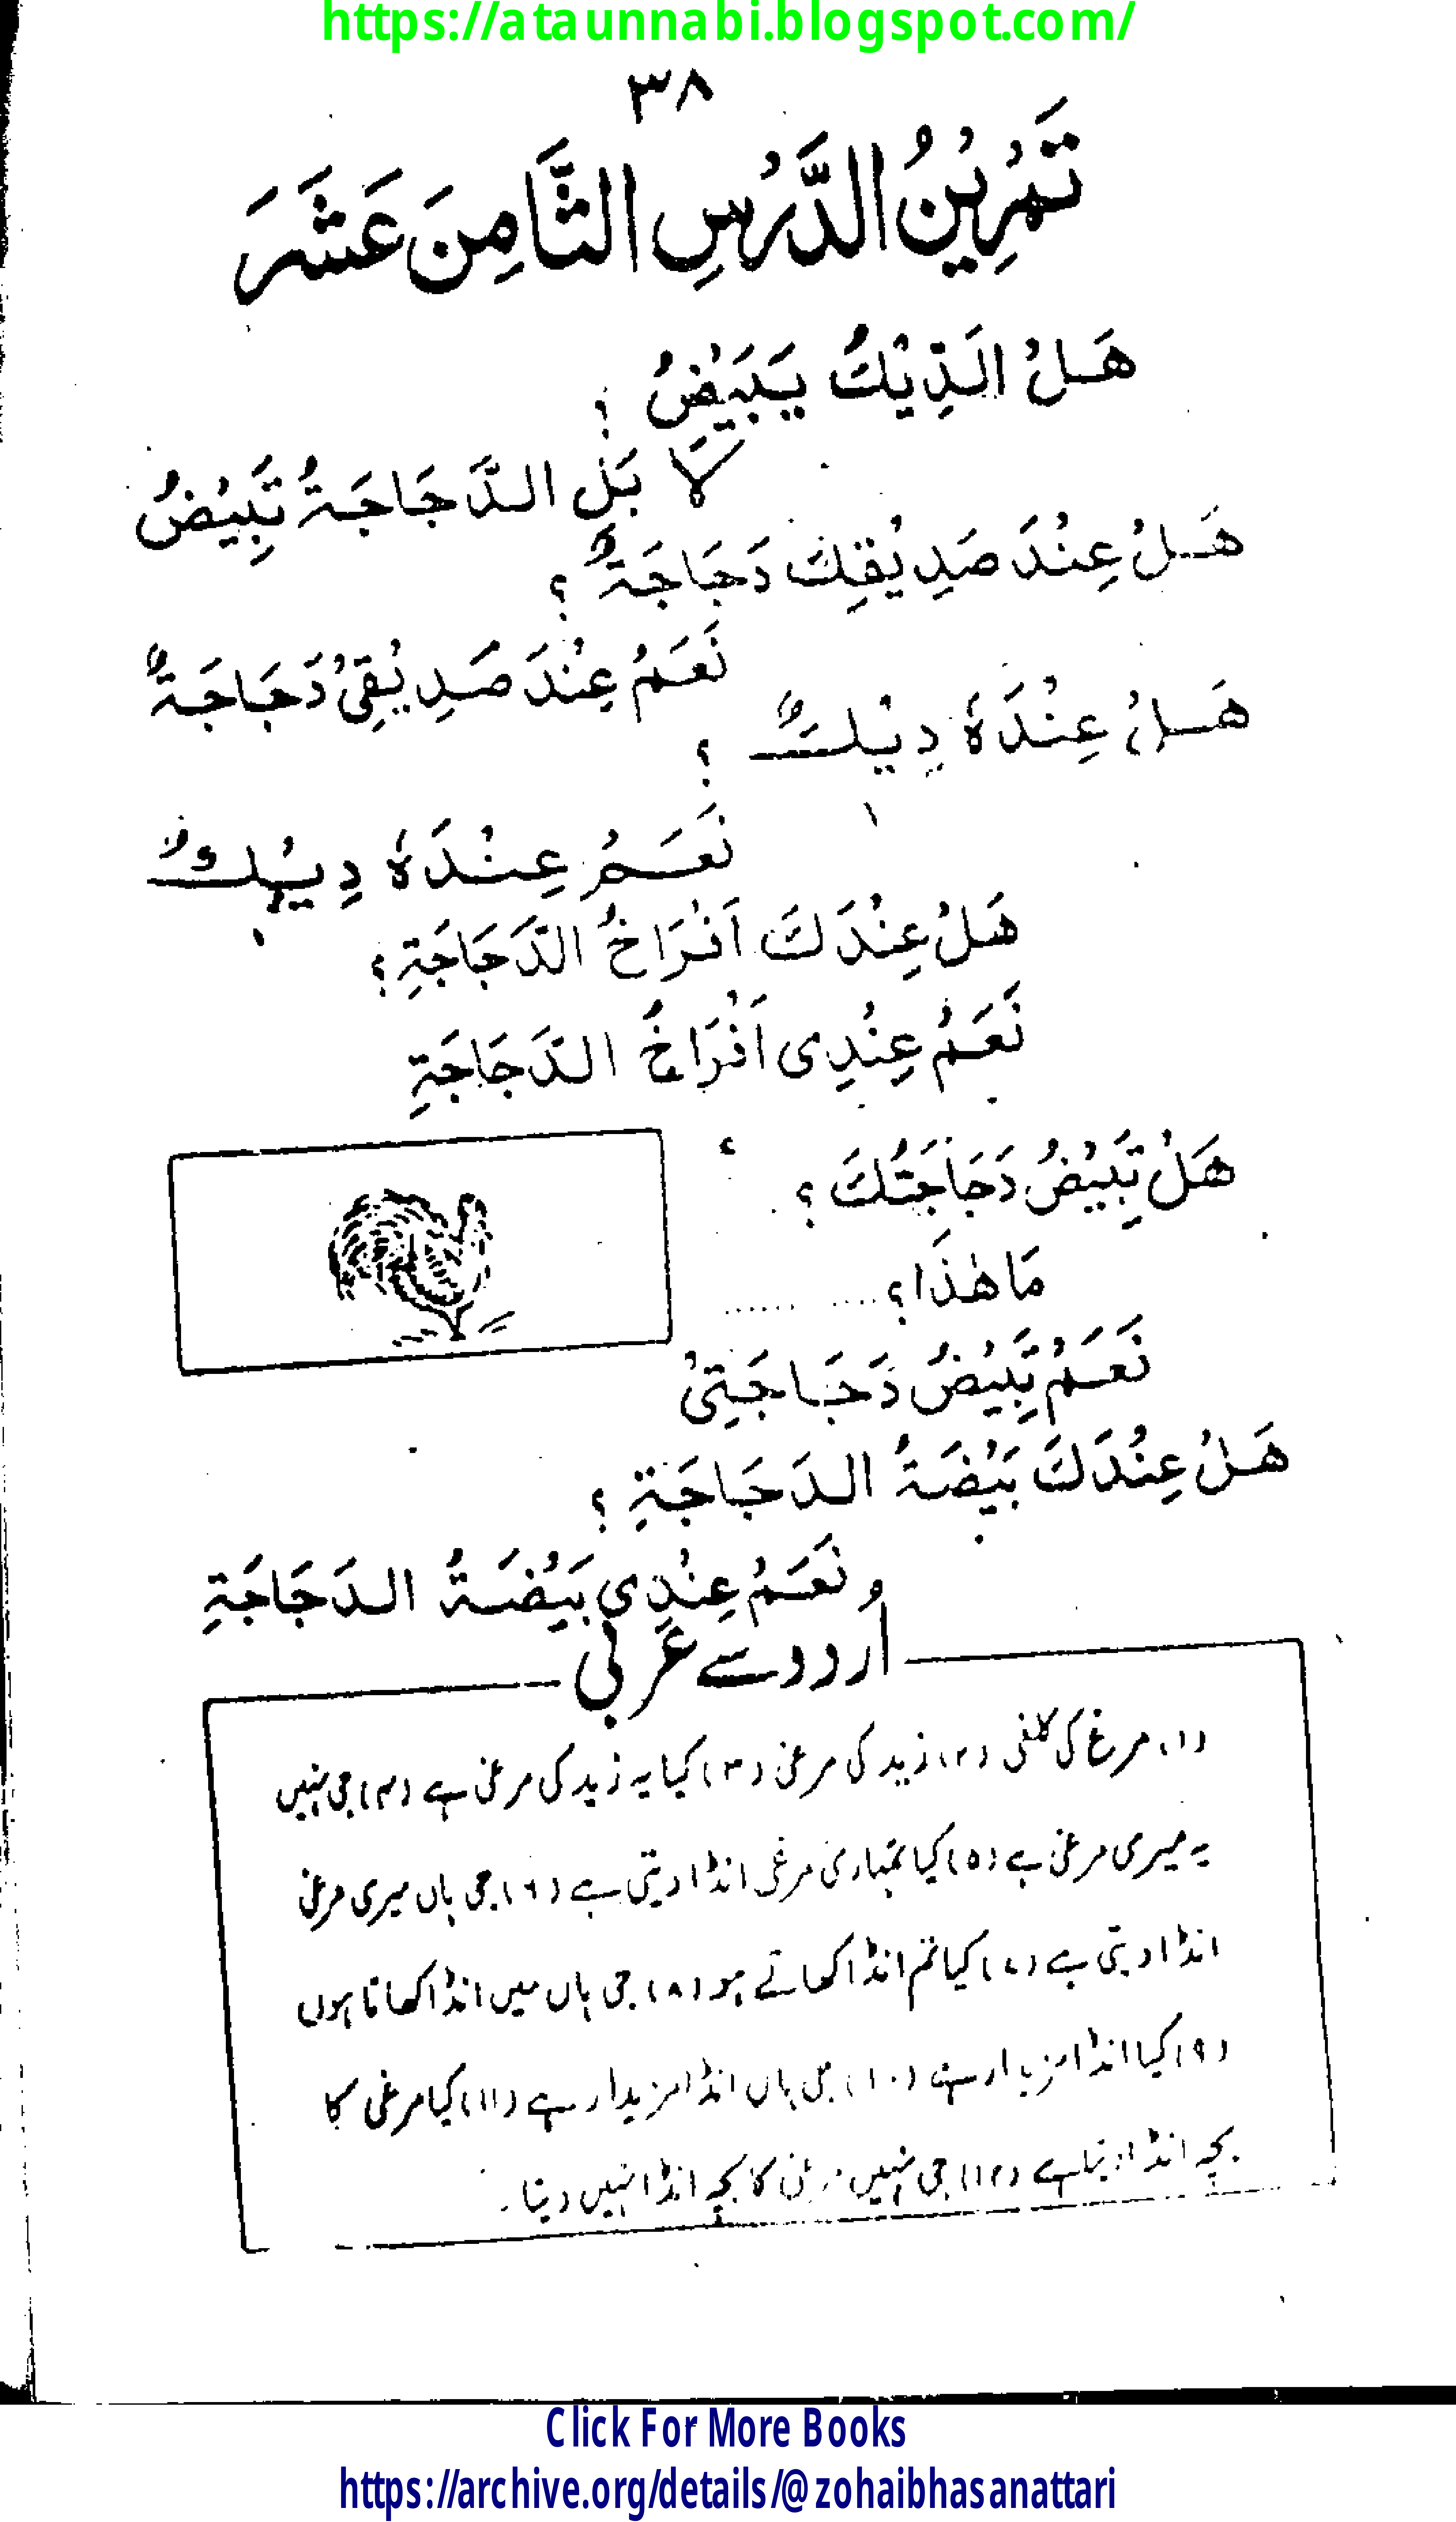 https://ataunnabi.blogspot.com/
٣٨
تَمْرِيْنُ الدَّرْسِ الثَّامِنَ عَشَرَ
هَلْ الدِّيْكُ يَبِيْضُ ؟
لَا بَلِ الدَّجَاجَةُ تَبِيْضُ
هَلْ عِنْدَ صَدِيْقِكَ دَجَاجَةٌ ؟
نَعَمْ عِنْدَ صَدِيْقِيْ دَجَاجَةٌ
هَلْ عِنْدَهٗ دِيْكٌ ؟
نَعَمْ عِنْدَهٗ دِيْكٌ
هَلْ عِنْدَكَ اَفْرَاخُ الدَّجَاجَةِ ؟
نَعَمْ عِنْدِی اَفْرَاخُ الدَّجَاجَةِ
هَلْ تَبِيْضُ دَجَاجَتُكَ ؟
مَا هٰذَا ؟ ............
نَعَمْ تَبِيْضُ دَجَاجَتِیْ
هَلْ عِنْدَكَ بَيْضَةُ الدَجَاجَةِ ؟
نَعَمْ عِنْدِی بَيْضَةُ الدَجَاجَةِ
اُردو سے عَربی
(۱) مرغ کی کلغی (۲) زید کی مرغی (۳) کیا یہ زید کی مرغی ہے (۴) جی نہیں
یہ میری مرغی ہے (۵) کیا تمہاری مرغی انڈا دیتی ہے (۶) جی ہاں میری مرغی
انڈا دیتی ہے (۷) کیا تم انڈا کھاتے ہو (۸) جی ہاں میں انڈا کھاتا ہوں
(۹) کیا انڈا مزیدار ہے (۱۰) جی ہاں انڈا مزیدار ہے (۱۱) کیا مرغی کا
بچہ انڈا دیتا ہے (۱۲) جی نہیں مرغی کا بچہ انڈا نہیں دیتا۔
Click For More Books
https://archive.org/details/@zohaibhasanattari